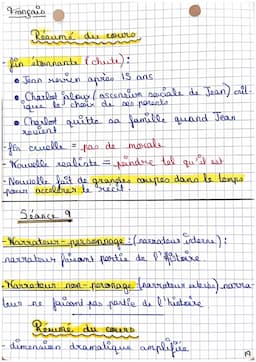 Français
Résumé du cours
- fin étonnante (chute) :
• Jean revien après 15 ans
• Charlot jaloux (ascension sociale de Jean) crit-
ique le choix de ses parents
• Charlot quitte sa famille quand Jean
revient
- fin cruelle = pas de morale
- Nouvelle realiste = peindre tel qu'il est
- Nouvelle fait de grandes coupes dans le temps
pour accélérer le récit.
Séance 9
- Narrateur-personnage : (narrateur interne) :
narrateur faisant partie de l'histoire
- Narrateur non-personage (narrateur externe) narra-
teur ne faisant pas partie de l'histoire
Résumé du cours
- dimension dramatique amplifiée